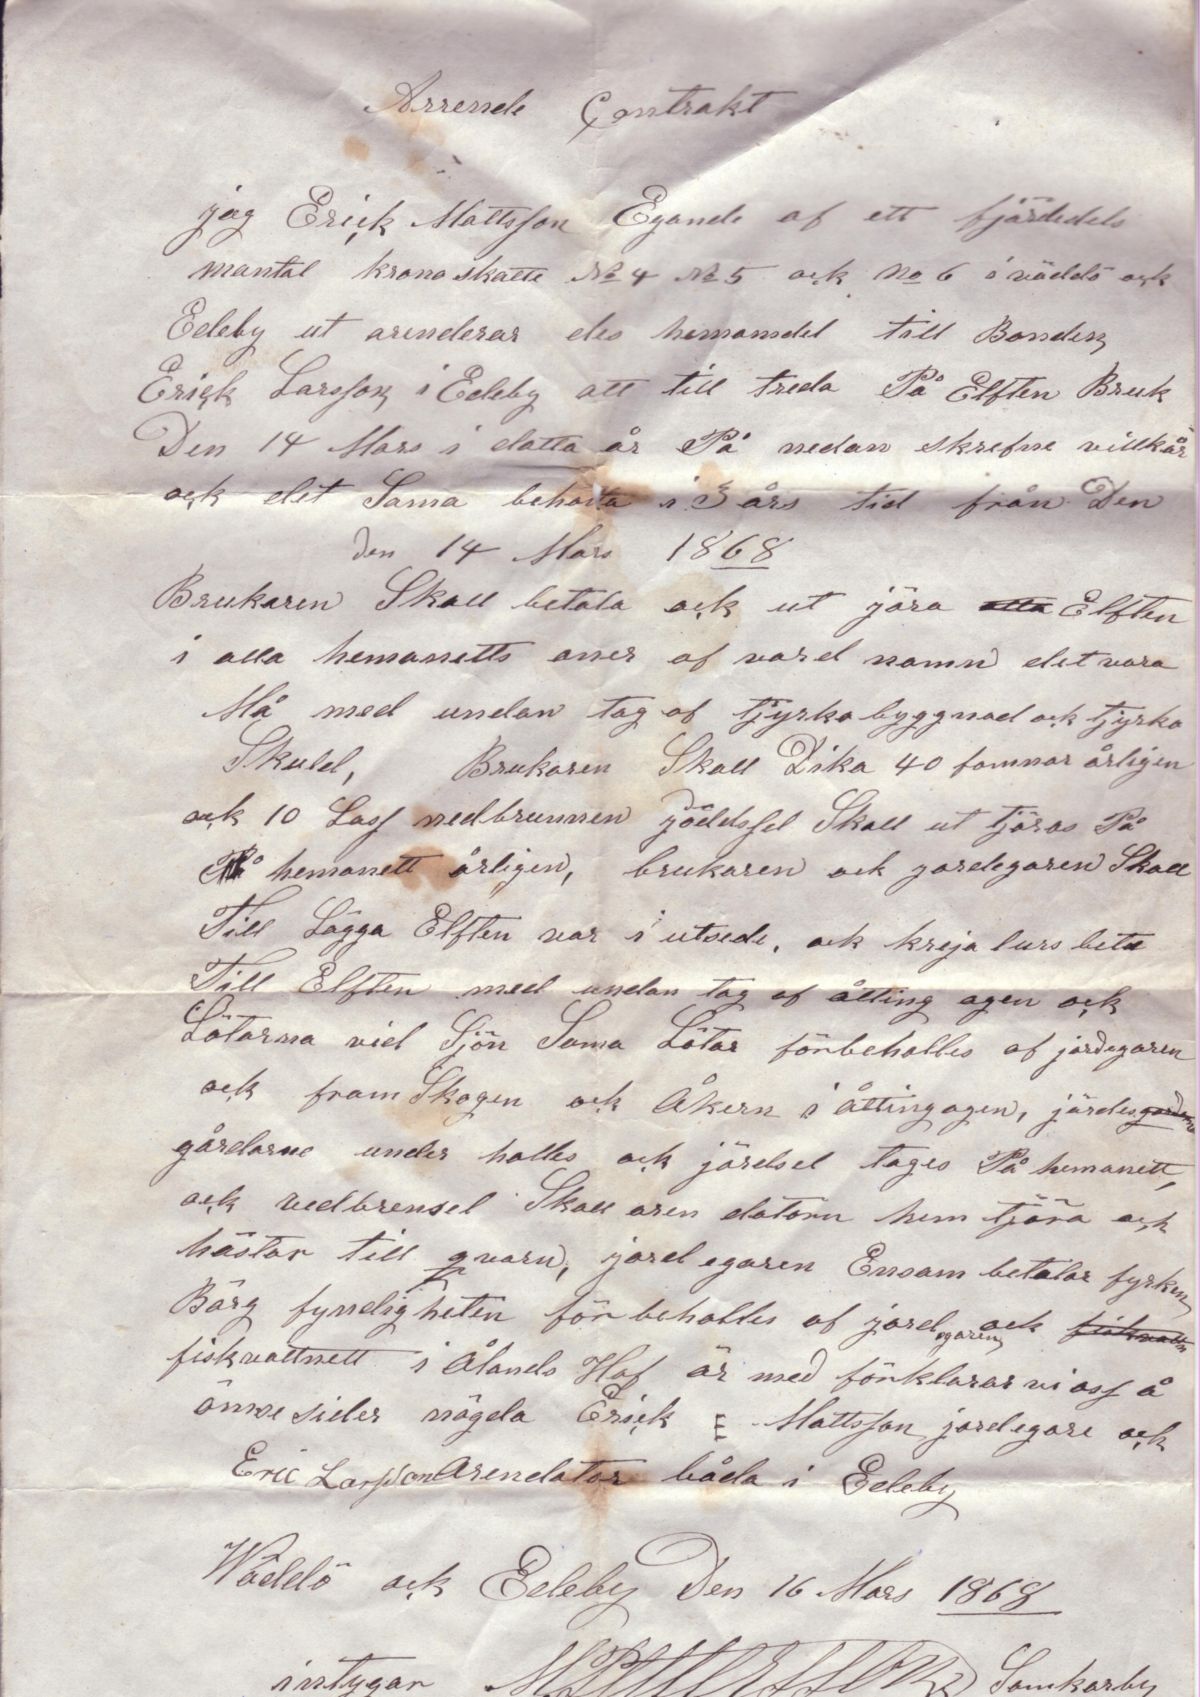 Arrende Contrakt
jag Erick Mattsson Egande af ett fjärdedels
mantal krono skatte No 4 No 5 ock No 6 i väddö ock
Edeby ut arenderar des hemamdel till Bonden
Erick Larsson i Edeby att till treda På Elften Bruk
Den 14 Mars i datta år På nedan skrefne villkår
ock det Sama behålla i 5 års tid från Den
den 14 Mars 1868
Brukaren Skall betala ock ut jöra alla Elften
i alla hemanetts oner af vard namn det vara
Må med undan tag af tjyrko byggnad ock tjyrko
Skuld, Brukaren Skall Dika 40 famnar årligen
ock 10 Lass nedbrunnen jöddssel Skall ut tjöras På
På hemanett årligen, brukaren ock jordegaren Skall
Till Lägga Elften var i utsede, ock kreja lurs bete
Till Elften med undan tag af åtting agen ock
Lötarna vid Sjön Sama Lötar förbehalles af jordegaren
ock fram Skogen ock Åkern i åttingagen, järdes
gårdarne under halles ock järdsel tages På hemanett,
ock vedbrensel Skall aren datörn hem tjöra ock
hästar till qvarn, jord egaren Ensam betalar fyrken
Bärg fyndigheten för behalles af jord egaren ock fiskvattn
fiskvattnett i Ålands Haf är med förklarar vi oss å
ömse sider nögda Erick E Mattsson jordegare ock
Eric Larsson Arendator båda i Edeby
Wäddö ock Edeby Den 16 Mars 1868
intygar Samkarby